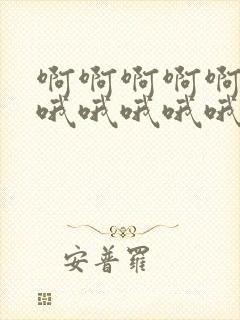 啊啊啊啊啊
哦哦哦哦哦
安普羅